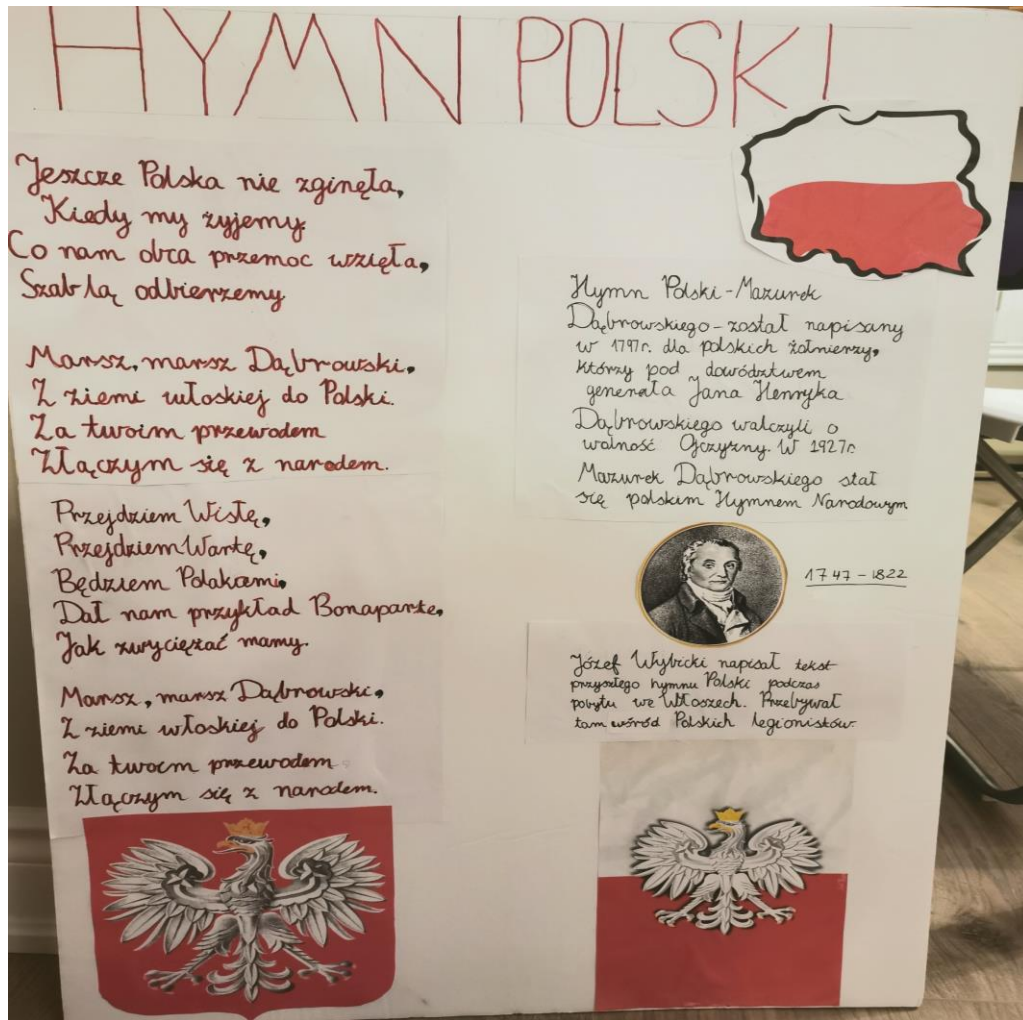 HYMN POLSKI
Jeszcze Polska nie zginęła,
Kiedy my żyjemy.
Co nam obca przemoc wzięła,
Szablą odbierzemy
Marsz, marsz Dąbrowski,
Z ziemi włoskiej do Polski.
Za twoim przewodem
Złączym się z narodem.
Przejdziem Wisłę,
Przejdziem Wartę,
Będziem Polakami,
Dał nam przykład Bonaparte,
Jak zwyciężać mamy.
Marsz, marsz Dąbrowski,
Z ziemi włoskiej do Polski.
Za twoim przewodem
Złączym się z narodem.
Hymn Polski - Mazurek
Dąbrowskiego - został napisany
w 1797r. dla polskich żołnierzy,
którzy pod dowództwem
generała Jana Henryka
Dąbrowskiego walczyli o
wolność Ojczyzny. W 1927r.
Mazurek Dąbrowskiego stał
się polskim Hymnem Narodowym
1747 - 1822
Józef Wybicki napisał tekst
przyszłego hymnu Polski podczas
pobytu we Włoszech. Przebywał
tam wśród Polskich legionistów